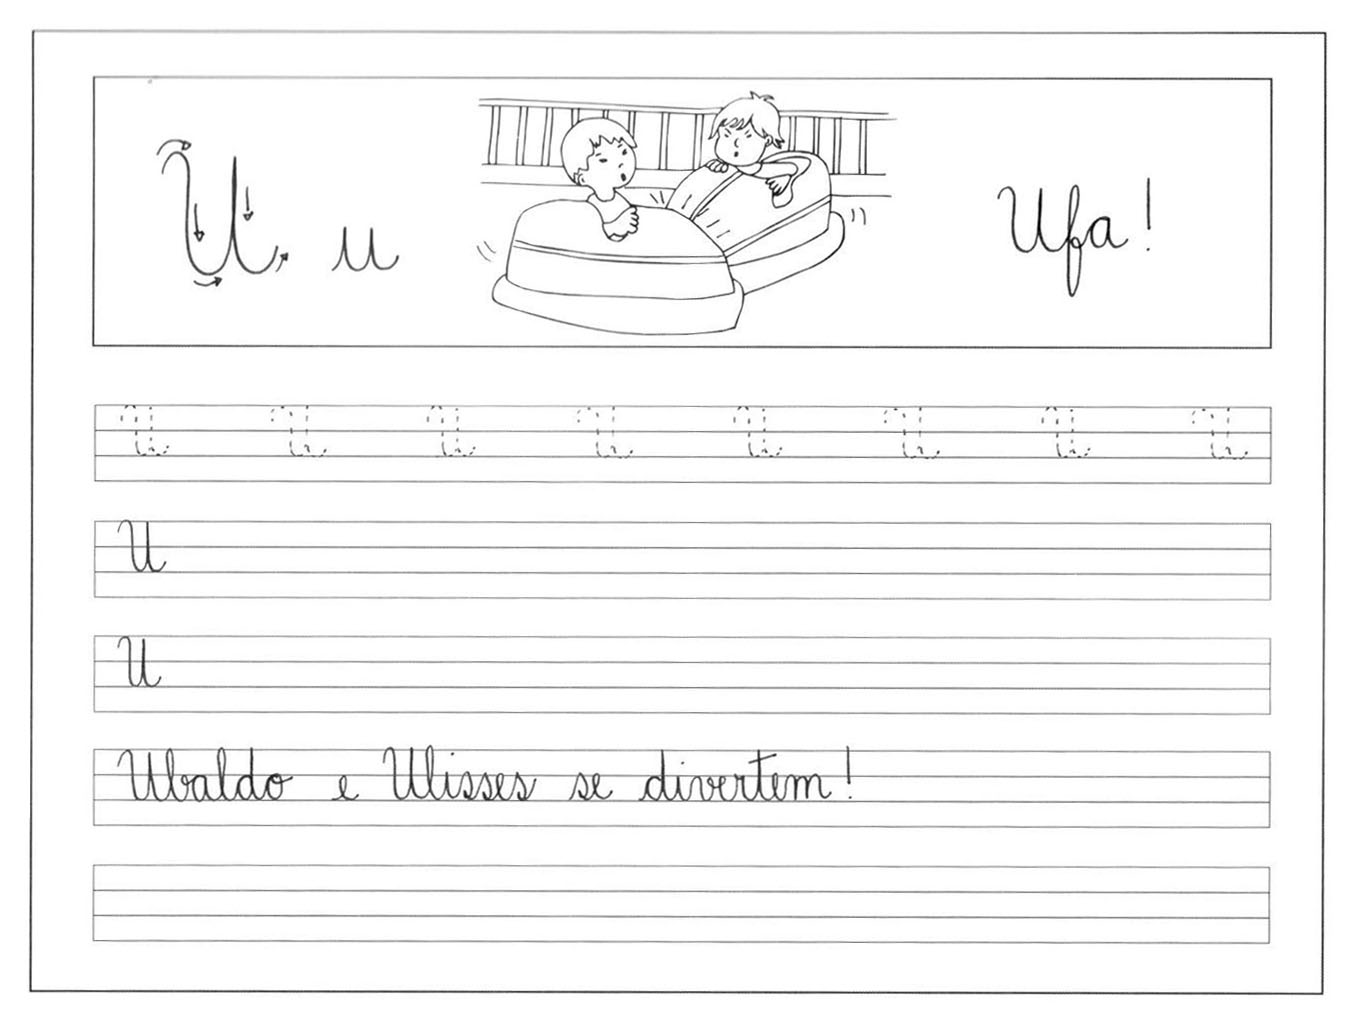 U u Ufa!
U U U U U U U U
U
U
Ubaldo e Ulisses se divertem!